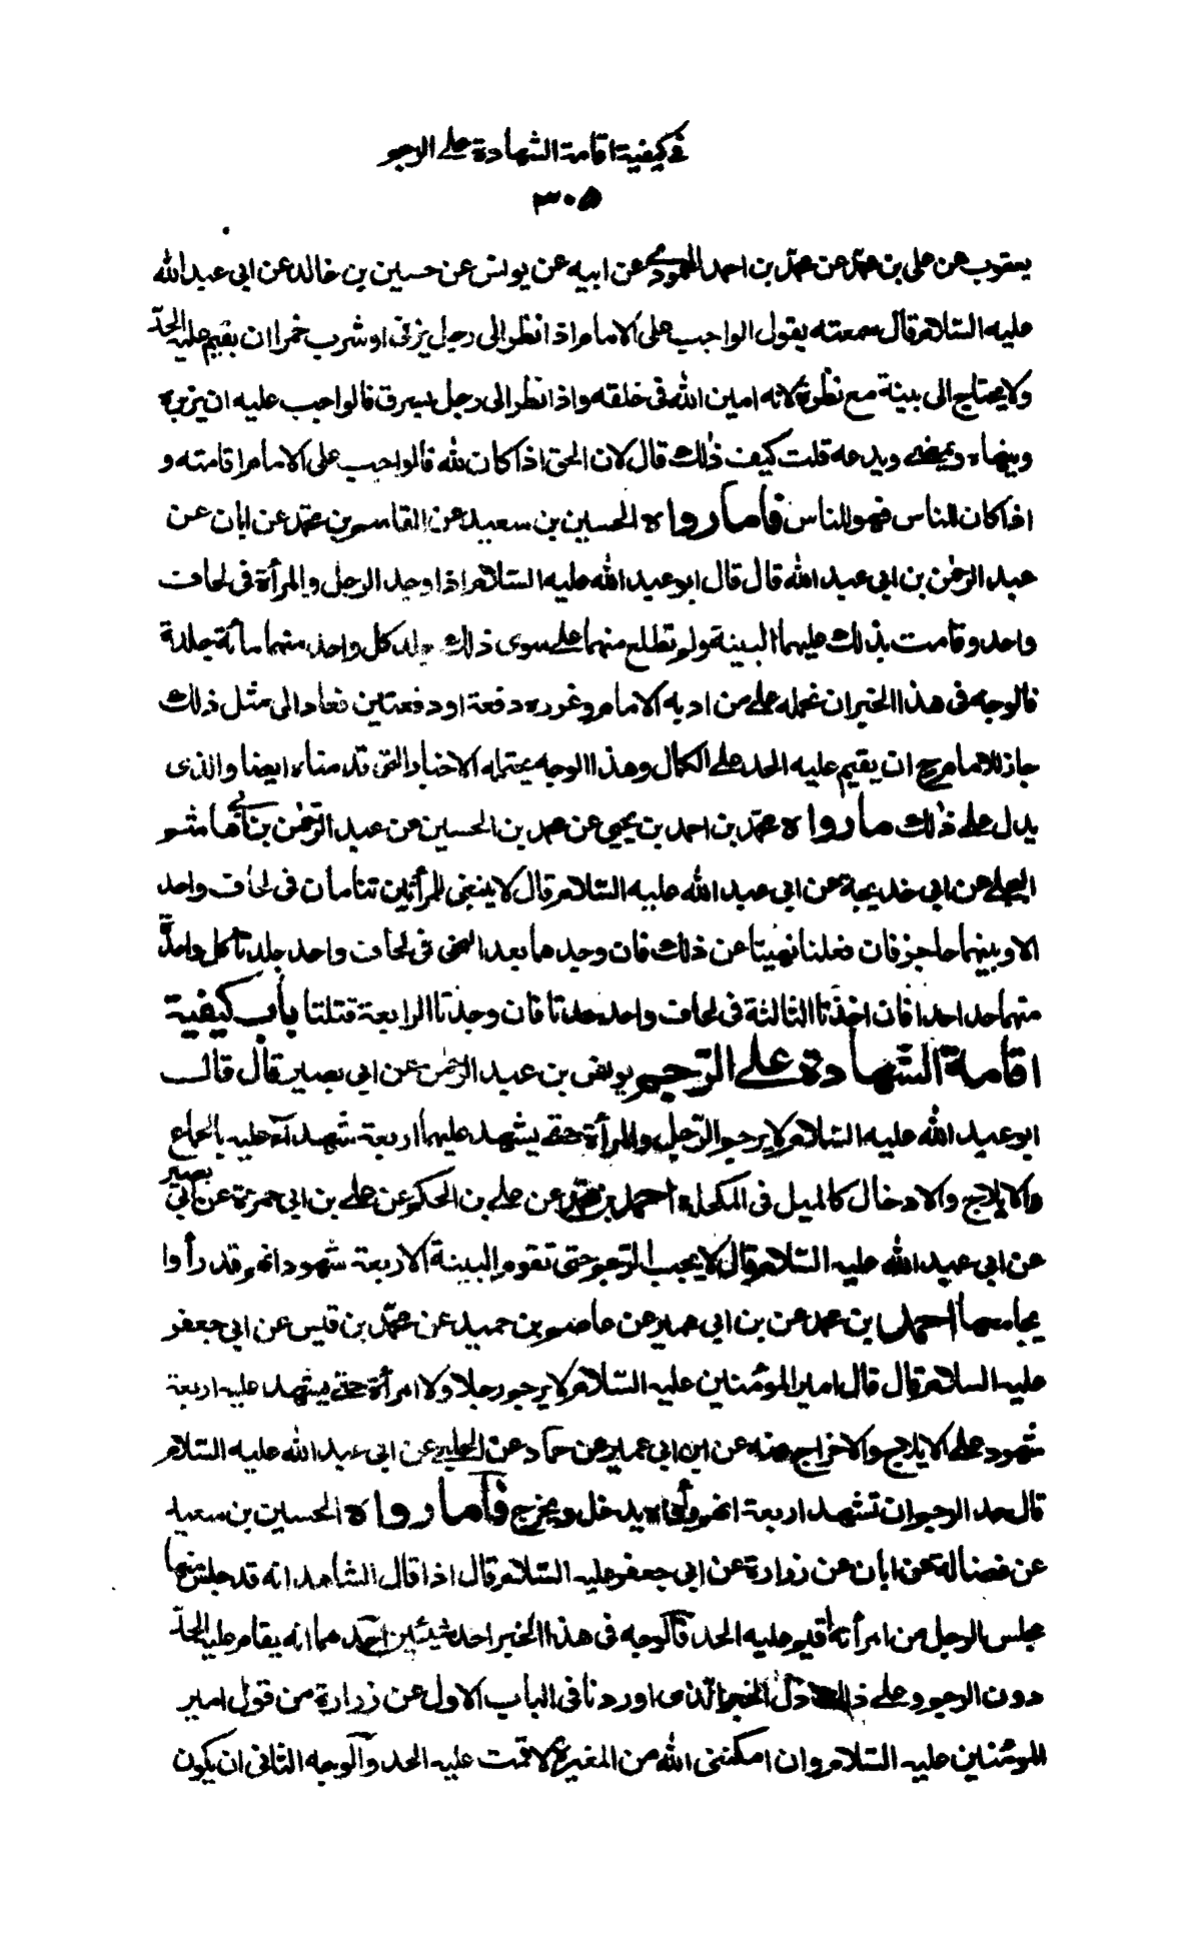 في كيفية اقامة الشهادة على الرجم
٣٠٥
يعقوب عن علي بن محمد عن محمد بن احمد المحمودي عن ابيه عن يونس عن حسين بن خالد عن ابي عبد الله
عليه السلام قال سمعته يقول الواجب على الامام اذا نظر الى رجل يزني او شرب خمرا ان يقيم عليه الحدّ
ولا يحتاج الى بينة مع نظره لانه امين الله في خلقه واذا نظر الى رجل يسرق فالواجب عليه ان يزبره
وينهاه ويمضي ويدعه قلت كيف ذلك قال لان الحق اذا كان لله فالواجب على الامام اقامته و
اذا كان للناس فهو للناس فأما رواه الحسين بن سعيد عن القاسم بن محمد عن ابان عن
عبد الرحمن بن ابي عبد الله قال قال ابو عبد الله عليه السلام اذا وجد الرجل والمرأة في لحاف
واحد وقامت بذلك عليهما البينة ولم تطلع منهما على سوى ذلك جلد كل واحد منهما مائة جلدة
فالوجه في هذا الخبر ان نحمله على من ادبه الامام وغوره دفعة او دفعتين فعاد الى مثل ذلك
جاز للامام ح ان يقيم عليه الحد على الكمال وهذا الوجه يحتمله الاخبار التي قدمناه ايضا والذي
يدل على ذلك ما رواه محمّد بن احمد بن يحيى عن محمد بن الحسين عن عبد الرّحمن بن ابي هاشم
البجلي عن ابي خديجة عن ابي عبد الله عليه السلام قال لا ينبغي لامرأتين تنامان في لحاف واحد
الا وبينهما حاجز فان فعلنا نهيتا عن ذلك فان وجدهما بعد النهي في لحاف واحد جلدتا كل واحدة
منهما حدا حدا فان اخذتا الثالثة في لحاف واحد حدتا فان وجدتا الرابعة قتلتا باب كيفية
اقامة الشهادة على الرّجم يونس بن عبد الرحمن عن ابي بصير قال قال
ابو عبد الله عليه السلام لا يرجم الرّجل والمرأة حتى يشهد عليهما اربعة شهدآء عليه بالجماع
والايلاج والادخال كالميل في المكحلة احمد بن محمّد عن علي بن الحكم عن علي بن ابي حمزة عن ابي بصير
عن ابي عبد الله عليه السلام قال لا يجب الرّجم حتى تقوم البينة الاربعة شهود انهم قد رأوا
يجامعها احمد ابن محمد عن بن ابي عمير عن عاصم بن حميد عن محمّد بن قيس عن ابي جعفر
عليه السلام قال قال امير المؤمنين عليه السلام لا يرجم رجلا ولا امرأة حتى يشهد عليه اربعة
شهود على الايلاج والاخراج عنه عن ابن ابي عمير عن حمّاد عن الحلبي عن ابي عبد الله عليه السلام
قال حد الرجم ان تشهد اربعة انهم رأوه يدخل ويخرج فأما رواه الحسين بن سعيد
عن فضالة عن ابان عن زرارة عن ابي جعفر عليه السلام قال اذا قال الشاهد انه قد جلس منها
مجلس الرجل من امرأته اقيم عليه الحد فالوجه في هذا الخبر احد شيئين آحدهما انه يقام عليه الحدّ
دون الرجم وعلى ذلك دلّ الخبر الّذي اوردنا في الباب الاول عن زرارة من قول امير
المؤمنين عليه السلام وان امكنني الله من المغيرة لاقمت عليه الحد والوجه الثاني ان يكون